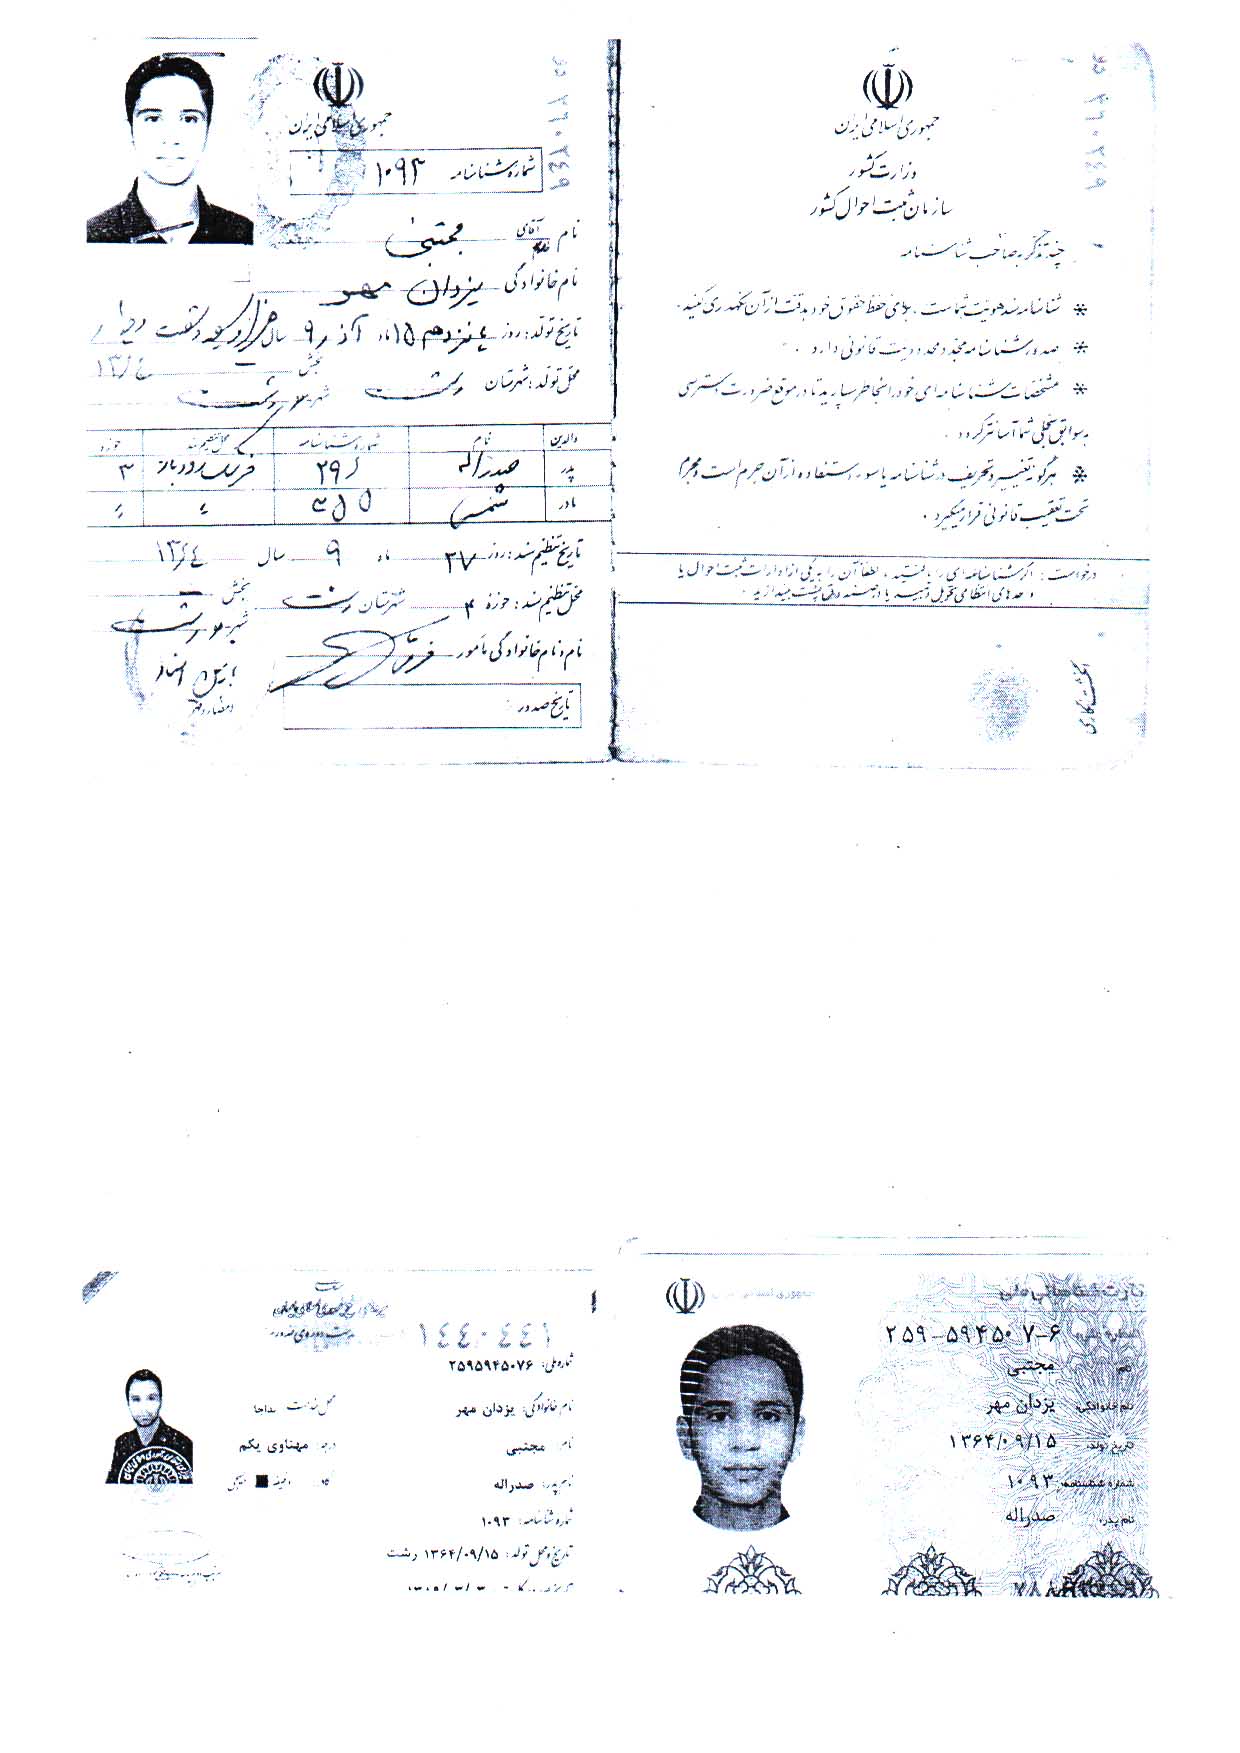 جمهوری اسلامی ایران
شماره شناسنامه ۱۰۹۳
نام آقای مجتبی
نام خانوادگی یزدان مهر
تاریخ تولد: روز پانزدهم ۱۵ ماه آذر ۹ سال هزار و سیصد و شصت و چهار
۱۳۶۴
محل تولد: شهرستان رشت بخش
شهر رشت
والدین نام شماره شناسنامه محل تنظیم سند حوزه
پدر صدراله ۲۹۶ ۳
مادر شمسی
تاریخ تنظیم سند: روز ۲۷ ماه ۹ سال ۱۳۶۴
محل تنظیم سند: حوزه ۴ شهرستان رشت بخش
شهر رشت
نام و نام خانوادگی مأمور
امضاء و مهر
تاریخ صدور:
جمهوری اسلامی ایران
وزارت کشور
سازمان ثبت احوال کشور
چند تذکر به صاحب شناسنامه
* شناسنامه سند هویت شماست، برای حفظ حقوق خود بدقت از آن نگهداری کنید.
* صدور شناسنامه مجدد محدودیت قانونی دارد.
* مشخصات شناسنامه‌ای خود را بخاطر بسپارید تا در موقع ضرورت دسترسی
به سوابق سجلی شما آسانتر گردد.
* هرگونه تغییر و تحریف در شناسنامه یا سوء استفاده از آن جرم است و مجرم
تحت تعقیب قانونی قرار میگیرد.
درخواست: اگر شناسنامه‌ای را یافتید، لطفاً آن را به یکی از ادارات ثبت احوال یا
واحدهای انتظامی تحویل دهید یا در صندوق پست بیندازید.
انگشت نگاری
۱۴۴۰۴۴۱
شماره ملی: ۲۵۹۵۹۴۵۰۷۶
نام خانوادگی: یزدان مهر
محل خدمت
نام: مجتبی
درجه: مهناوی یکم
نام پدر: صدراله
وظیفه ■
شماره شناسنامه: ۱۰۹۳
تاریخ و محل تولد: ۱۳۶۴/۰۹/۱۵ رشت
کارت شناسائی ملی
جمهوری اسلامی ایران
شماره ملی: ۲۵۹-۵۹۴۵۰۷-۶
نام: مجتبی
نام خانوادگی: یزدان مهر
تاریخ تولد: ۱۳۶۴/۰۹/۱۵
شماره شناسنامه: ۱۰۹۳
نام پدر: صدراله